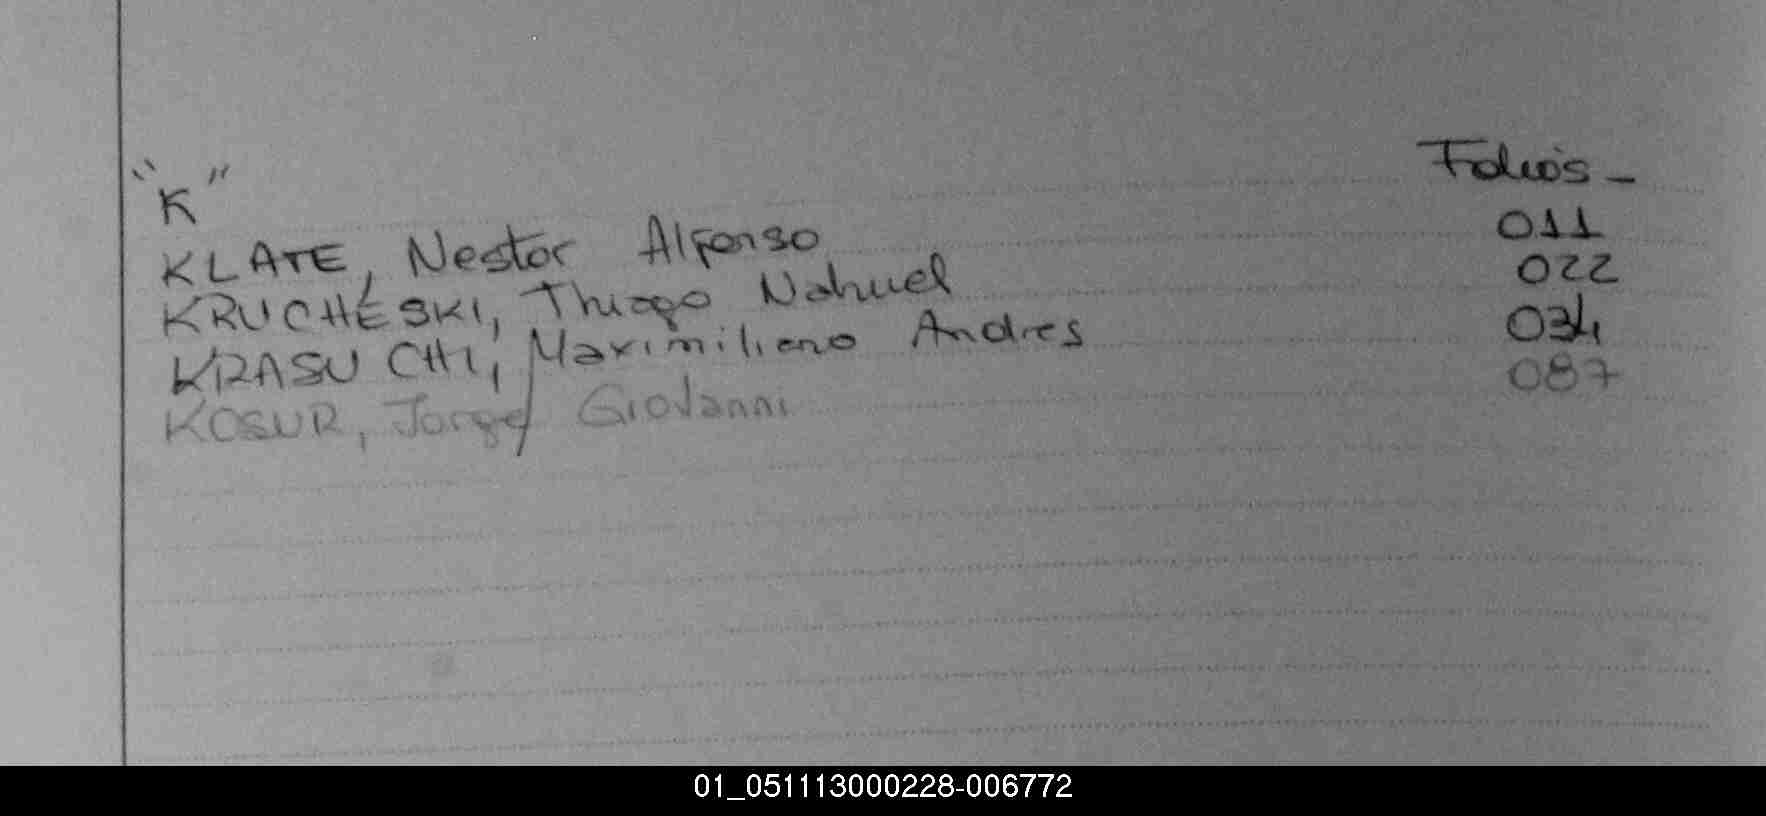 "K"
Folios -
KLATE, Nestor Alfonso 011
KRUCHESKI, Thiago Nahuel 022
KRASUCHI, Maximiliano Andres 034
KOSUR, Jorge Giovanni 087
01_051113000228-006772